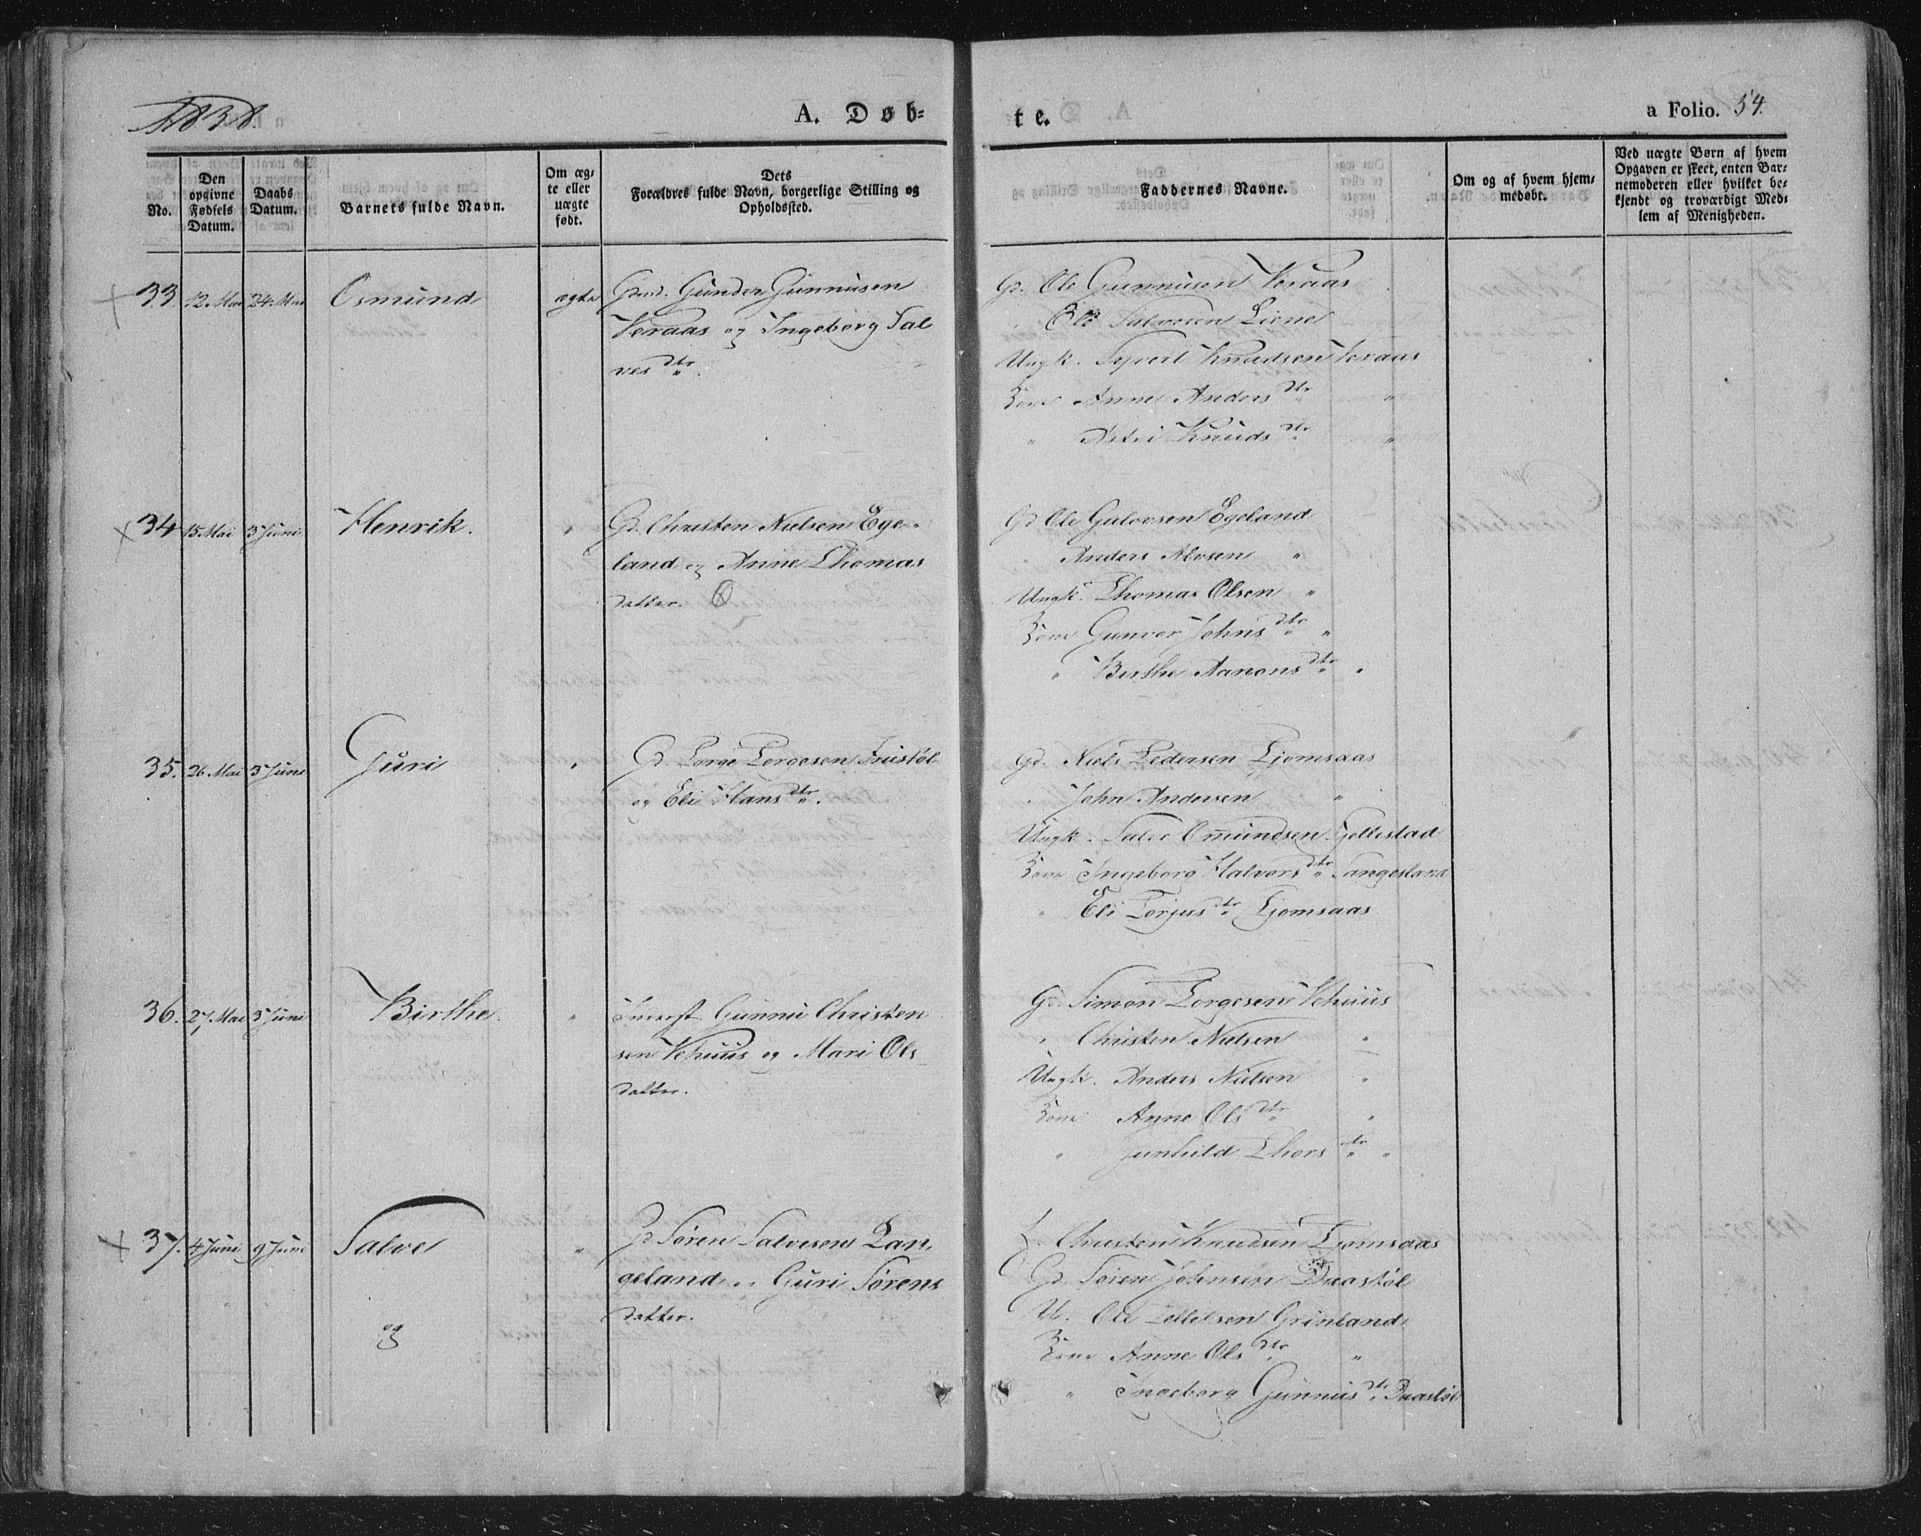 1838.
A. Døb-
te.
a Folio. 54.
No.
Den opgivne Fødsels Datum.
Daabs Datum.
Barnets fulde Navn.
Om æg-
te eller
uægte
født.
Dets
Forældres fulde Navn, borgerlige Stilling og
Opholdssted.
Faddernes Navne.
Om og af hvem hjem-
medøbt.
Ved uægte Børn af hvem
Opgaven er skeet, enten Bar-
nemoderen eller hvilket be-
kjendt og troværdigt Med-
lem af Menigheden.
33. 12. Mai 24. Mai Osmund ægte
Gunder Gunnusen
Veraas og Ingeborg Sal
ves dtr.
Gd. Ole Gunnusen Veraas
Ole Salvesen Liene
Ungk. Syvert Knudsen Veraas
Anne Anders dtr "
" Astri Knuds dtr "
34 15 Mai 3 Juni Henrik. "
Gd. Christen Nielsen Ege-
land og Anne Thomas
datter.
Gd Ole Gulovsen Egeland
Anders Alvsen "
Ungk. Thomas Olsen "
Gunvor Johns dtr "
" Berthe Aanons dtr "
35. 26 Mai 3 Juni Guri "
Gd. Torge Torgesen Fristøl
og Eli Hans dtr.
Gd. Niels Pedersen Tjomsaas
" John Andersen "
Ungk. Salve Omundsen Tjellestad
Ingeborg Halvors dtr Sangesland
" Eli Torjus dtr Tjomsaas
36. 27. Mai 3 Juni Birthe. "
Gunnu Christen
sen Vehuus og Mari Ols
datter.
Gd. Simon Torgesen Vehuus
" Christen Nielsen "
Ungk. Anders Nielsen "
Anne Ols dtr "
" Gunhild Thors dtr "
37. 4 Juni 9 Juni Salve "
og
Gd Søren Salvesen Lan-
geland og Guri Sørens
datter.
Christen Knudsen Tjomsaas
Gd. Søren Johnsen Daastøl
U. Ole Tellefsen Grinland
Anne Ols dtr "
" Ingeborg Gunnus dtr Daastøl